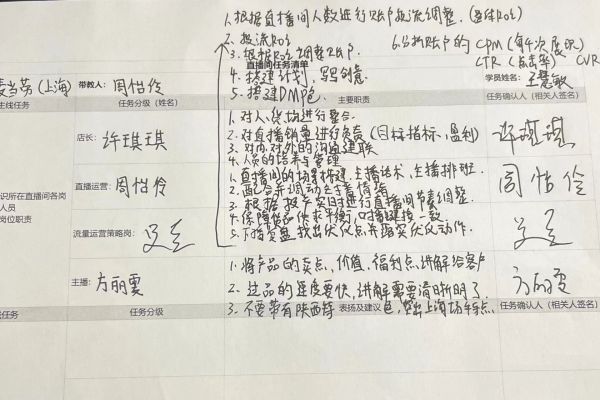 1. 根据直播间人数进行账户投流调整.(整体ROI)
2. 投流ROI
6. 分析账户的CPM(每千次展现)
3. 根据ROI调整账户.
CTR(点击率) CVR
直播间任务清单
4. 搭建计划,写创意.
(上海) 带教人: 周怡伶
学员姓名: 王慧敏
5. 搭建DMP包.
主线任务 任务分级(姓名) 主要职责 任务确认人(相关人签名)
1. 对人、货、场进行整合.
2. 对直播销量进行负责(目标指标、盈利)
店长: 许琪琪
许琪琪
3. 对内对外的沟通建联
4. 人员的培养与管理
1. 直播间的场景搭建,主播话术,主播排班.
直播运营: 周怡伶
周怡伶
识所在直播间各岗
人员
岗位职责
2. 配合并调动主播情绪
3. 根据投产实时进行直播间节奏调整.
4. 保障货品供求平衡,
流量运营策略岗:
5. 下播复盘找出优化点并落实优化动作.
1. 将产品的卖点,价值,福利点讲解给客户
主播: 方丽雯
方丽雯
2. 过品的速度要快,讲解需要清晰明了.
任务 任务分级 表扬及建议 任务确认人(相关人签名)
3. 不要带有陕西特色,突出上海